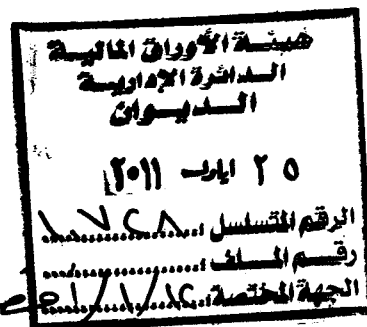 هيئة الأوراق المالية
الدائرة الإدارية
الديوان
٢٥ ايار ٢٠١١
الرقم المتسلسل
رقم الملف
الجهة المختصة